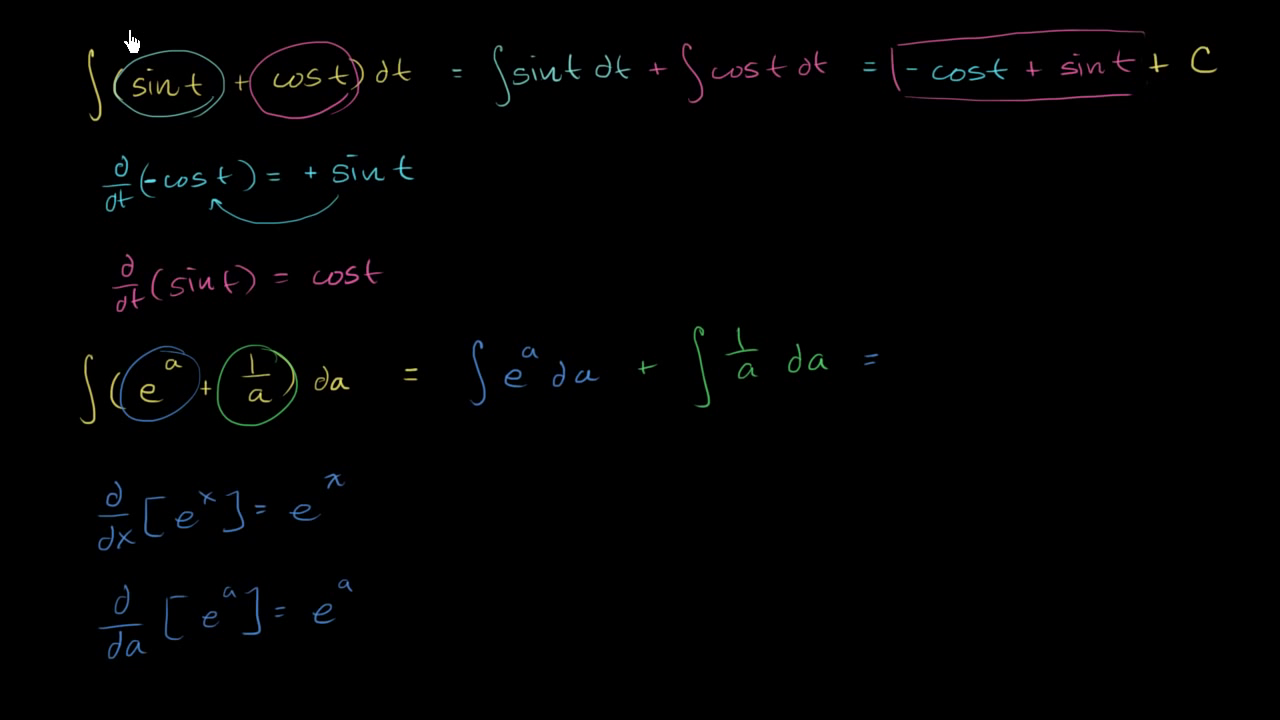 ∫(sin t + cos t) dt = ∫sin t dt + ∫cos t dt = - cos t + sin t + C
d/dt(-cos t) = + sin t
d/dt(sin t) = cos t
∫(e^a + 1/a) da = ∫e^a da + ∫1/a da =
d/dx[e^x] = e^x
d/da[e^a] = e^a